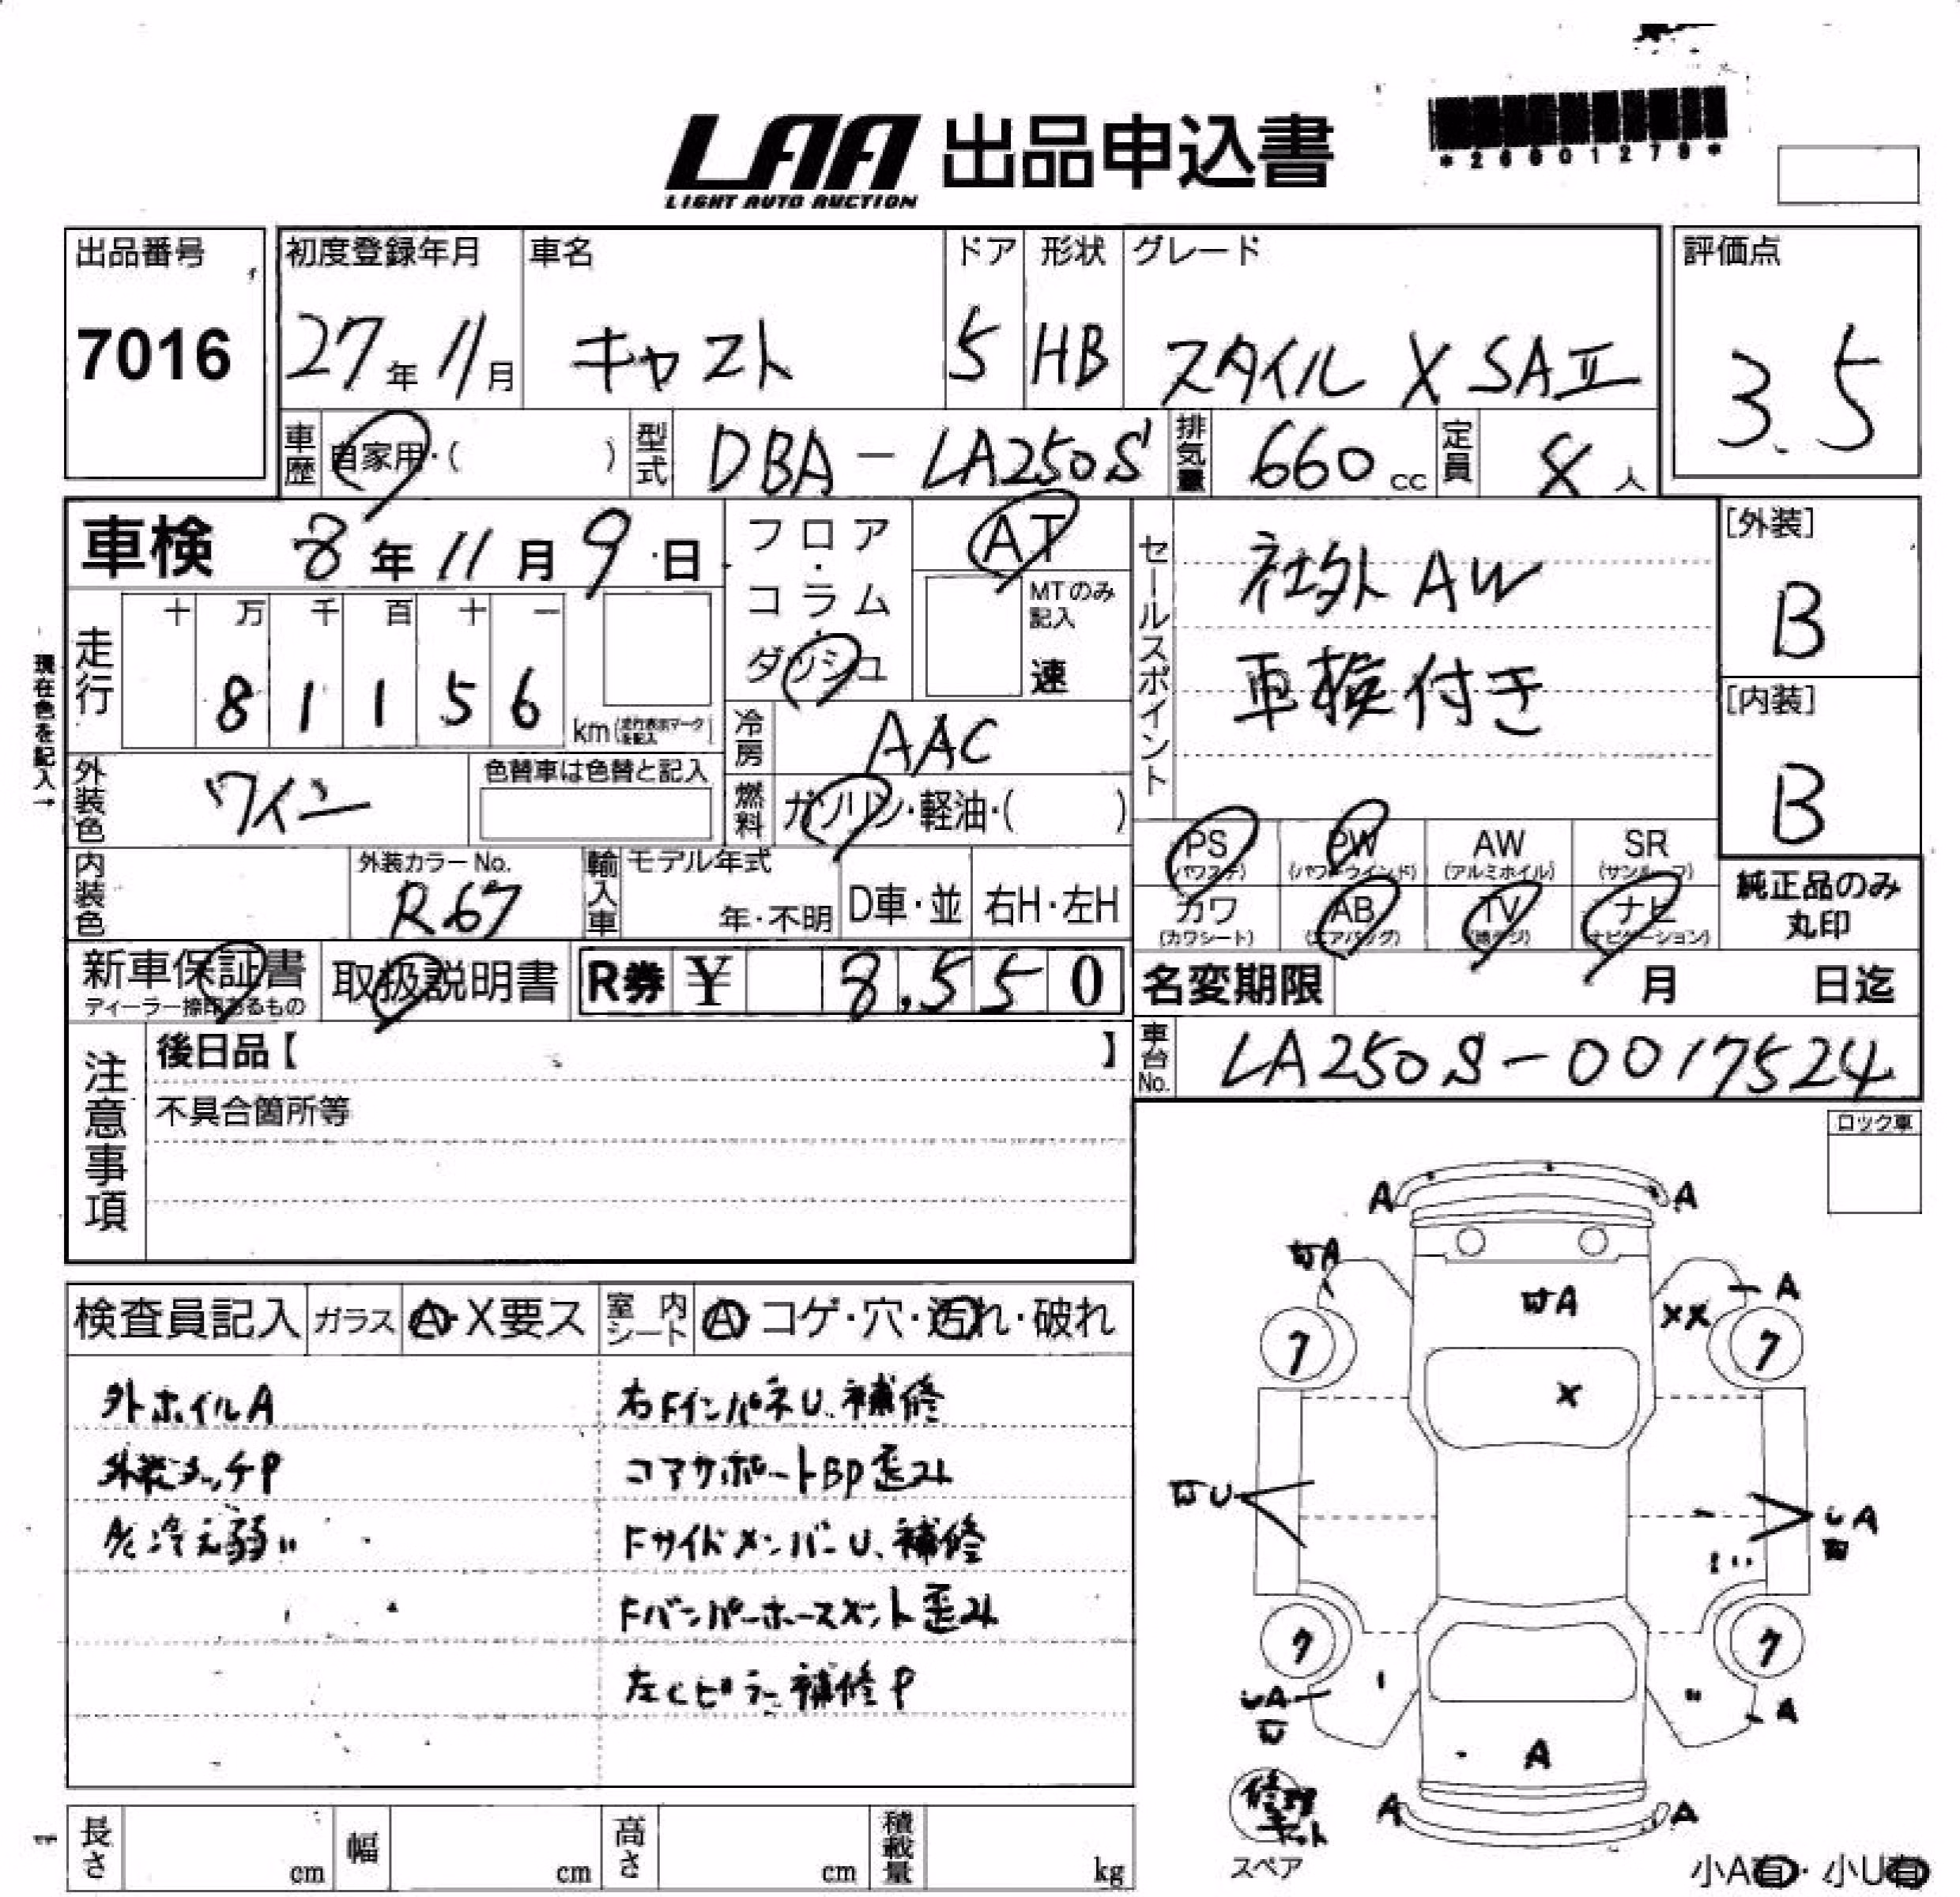 LAA 出品申込書
LIGHT AUTO AUCTION
*26601279*
出品番号 初度登録年月 車名 ドア 形状 グレード 評価点
7016 27年11月 キャスト 5 HB スタイル X SAⅡ 3.5
車歴 自家用・( ) 型式 DBA-LA250S 排気量 660cc 定員 人
車検 8年11月9日 フロア・コラム・ダッシュ AT
MTのみ記入 速
セールスポイント 社外AW
車検付き
[外装] B
[内装] B
現在色を記入→
走行 十 万 千 百 十 一
8 1 1 5 6 km
冷房 AAC
外装色 ワイン 色替車は色替と記入
燃料 ガソリン・軽油・( )
PS PW AW SR
(パワステ) (パワーウインド) (アルミホイル) (サンルーフ)
カワ AB TV ナビ
(カワシート) (エアバッグ) (地デジ) (ナビゲーション)
純正品のみ
丸印
内装色 外装カラーNo. R67 輸入車 モデル年式 年・不明 D車・並 右H・左H
新車保証書 取扱説明書 R券 ¥ 8,550
ディーラー捺印あるもの
名変期限 月 日迄
車台No. LA250S-0017524
注意事項 後日品【 】
不具合箇所等
ロック車
検査員記入 ガラス A・X要ス 室内シート A・コゲ・穴・汚れ・破れ
外ホイルA 右FインパネU、補修
外装タッチP コアサポートBP歪み
A/C冷え弱い FサイドメンバーU、補修
Fバンパーホースメント歪み
左Cピラー補修P
A A
A A
A
XX
ワ ワ
X
U A
ワ ワ
A A
A
A A
修理キット
スペア
小A有・小U有
長さ cm 幅 cm 高さ cm 積載量 kg